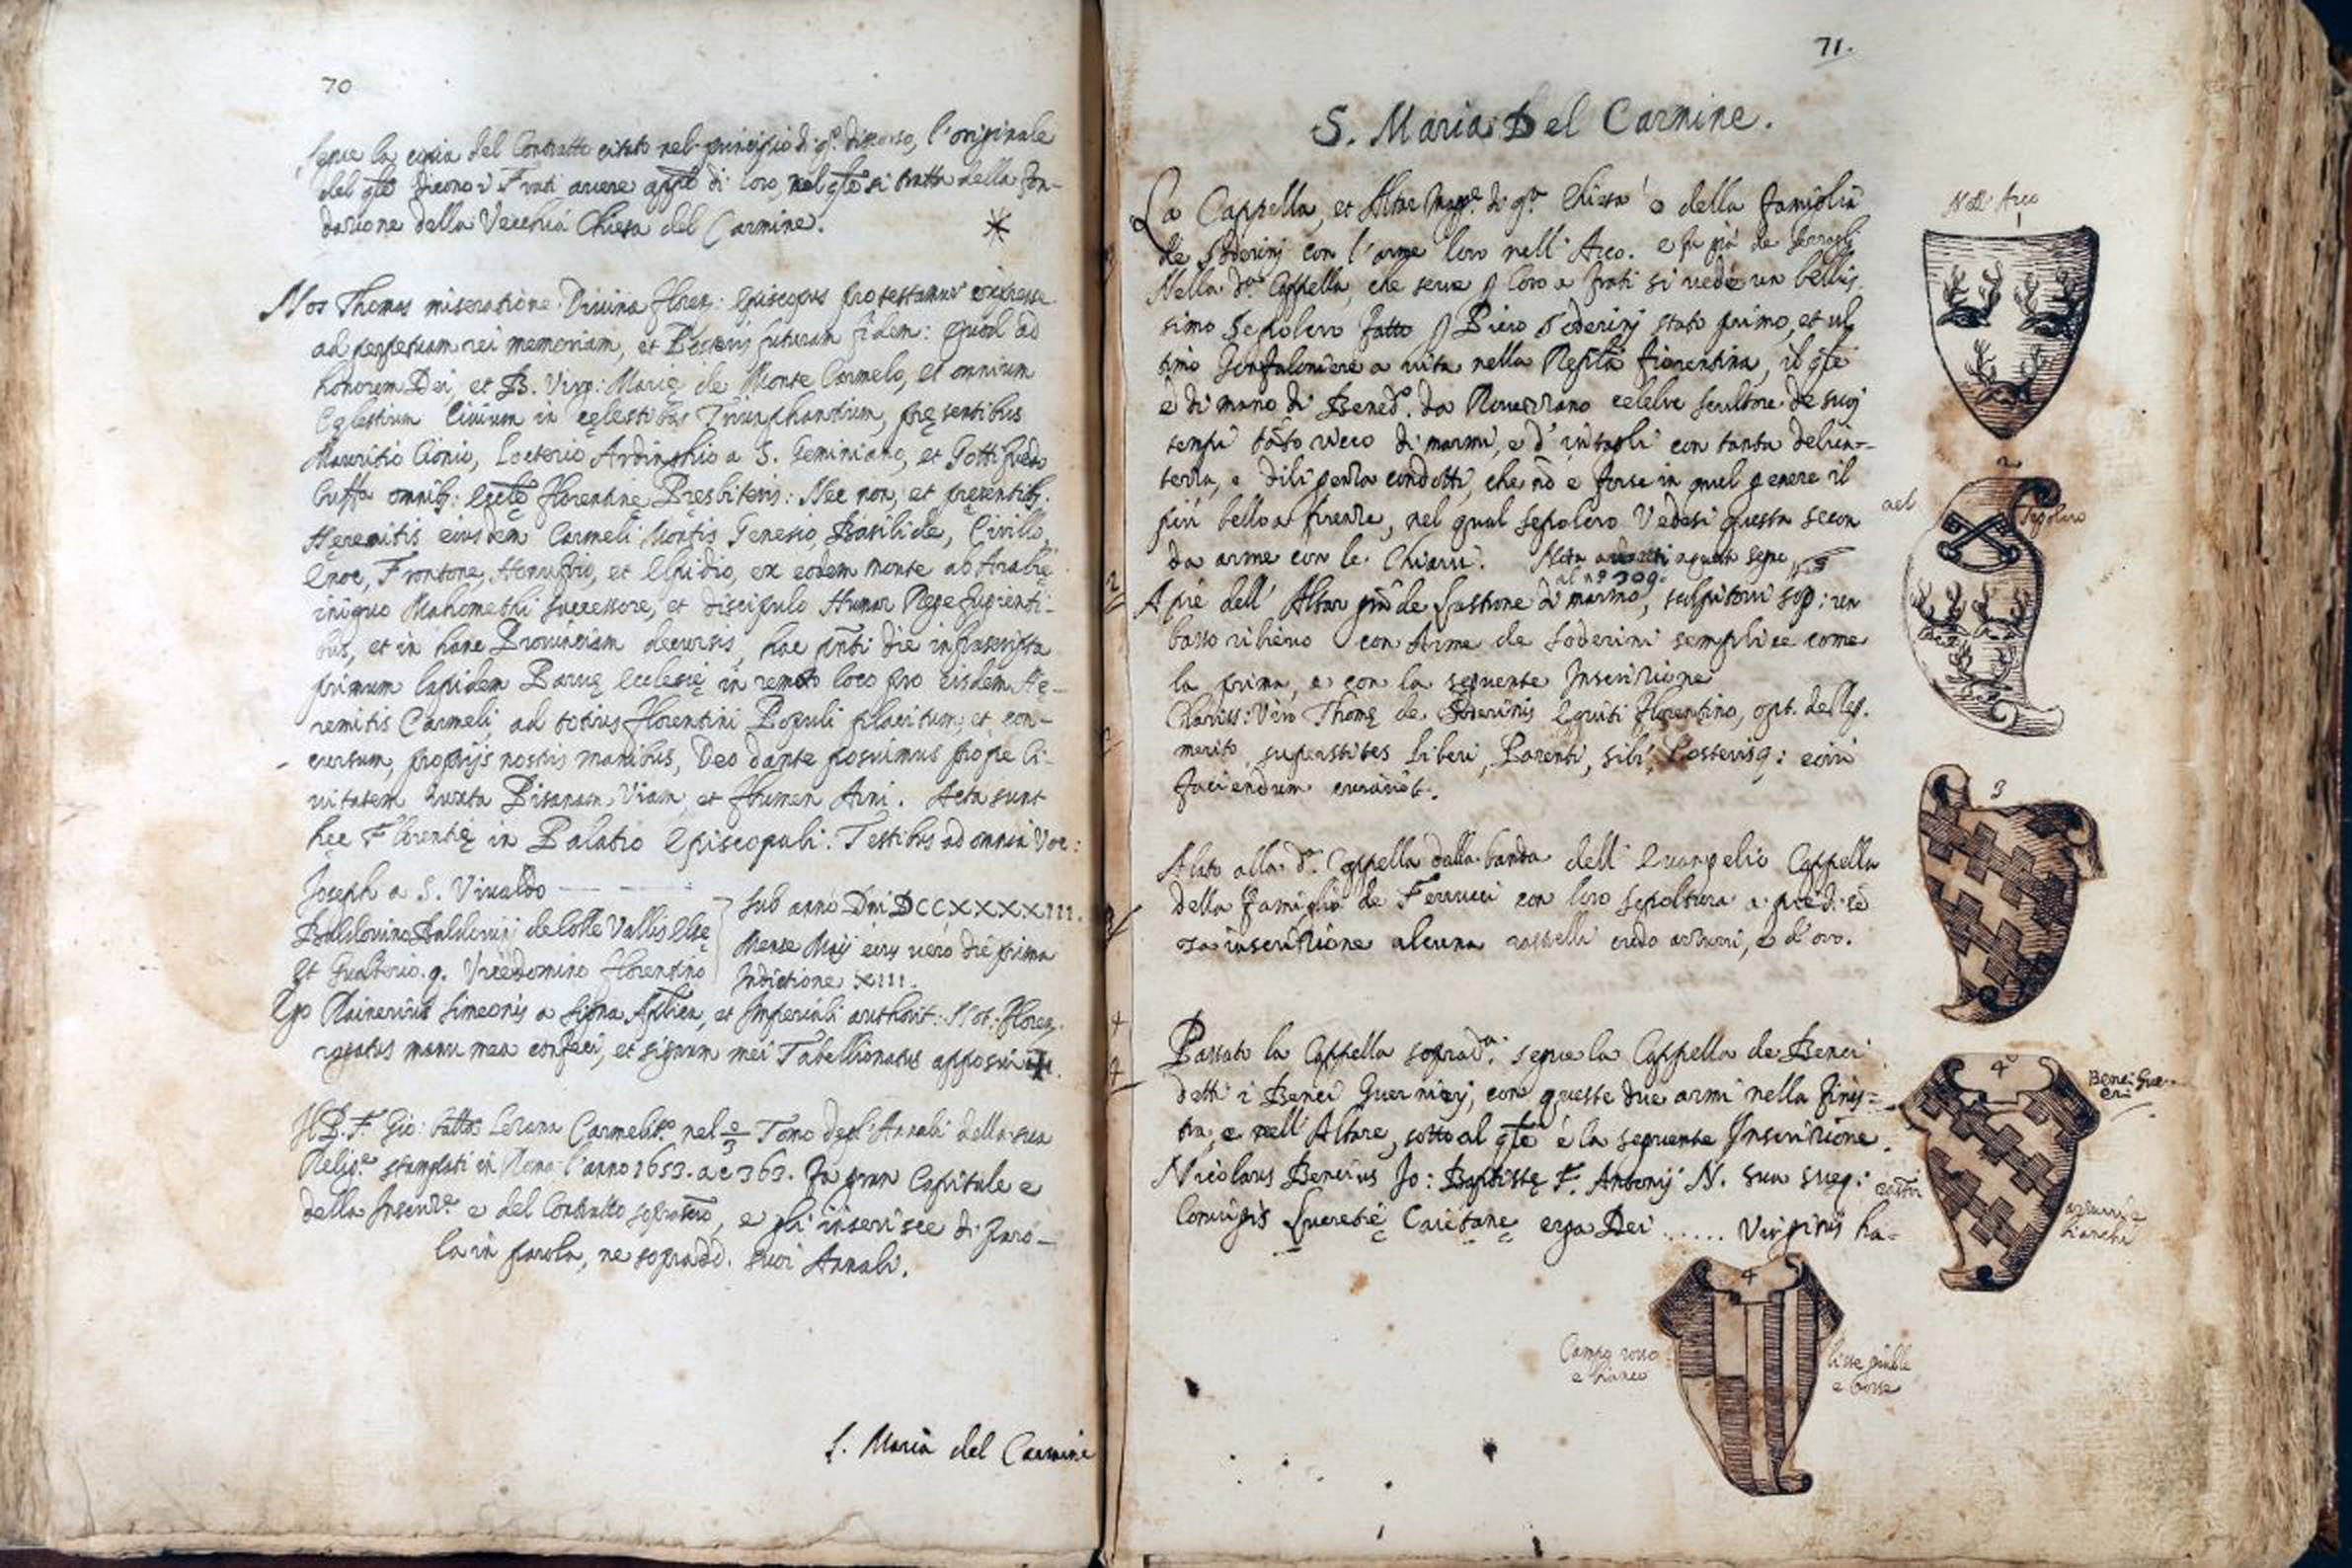 70
segue la copia del Contratto citato nel principio di q.º discorso, l'originale
del q̃le dicono i Frati avere app̃o di loro, nel q̃le si tratta della fon-
dazione della Vecchia Chiesa del Carmine.
Nos Thomas miseratione Divina Floren: Episcopus protestamur expresse
ad perpetuam rei memoriam, et Posteris futuram fidem: quod ad
honorem Dei, et B. Virg: Marię de Monte Carmelo, et omnium
Cęlestium Civium in cęlestibus Triumphantium, pręsentibus
Mauritio Cionio, Loeterio Ardinghio a S. Geminiano, et Gottifredo
omnib: Florentine Presbiteris: Nec non, et presentib:
Heremitis eiusdem Carmeli Montis Genesio, Basilide, Cirillo,
Enoc, Frontone, Honuffrio, et Elpidio, ex eodem monte ab Arabię
iniquo Mahomethi successore, et discipulo Humar Rege fugienti-
bus, et in hanc Provinciam decursis, hac pñti die infrascripta
primum lapidem Parvę Ecclesię in remoto loco pro eisdem He-
remitis Carmeli, ad totius Florentini Populi placitum, et con-
cursum, proprijs nostris manibus, Deo dante posuimus prope Ci-
vitatem iuxta Pisanam Viam, et Flumen Arni. Acta sunt
hęc Florentię in Palatio Episcopali. Testibus ad omnia Voc:
Joseph a S. Vivaldo
Baldovino Baldovini de Colle Vallis Elsę
et Gualterio q. Vicedomino Florentino
sub anno Dni DCCXXXXIII.
Mense Maij eius vero die prima
Indictione XIII.
Ego Rainerius Simeonis a Signa Apl̃ica, et Imperiali authorit: Not: Floren.
rogatus manu mea confeci, et signum mei Tabellionatus apposui
Il P. F. Gio: Batta Lezana Carmelit.º nel 2/3 Tomo degl'Annali della sua
Relig.e stampati in Roma l'anno 1653. a c 363. fa gran Capitale e
della Inscriz.e e del Contratto soprad̃tto, e gli inserisce di paro-
la in parola, ne sopradd. suoi Annali.
S. Maria del Carmine
71.
S. Maria Del Carmine.
La Cappella, et Altar Magg.e di q.ta Chiesa è della famiglia
de Soderinj con l'arme loro nell'Arco. e fu già de Serragli
Nella d.a Cappella, che serve p Coro a frati si vede un bellis
simo Sepolcro fatto p Piero Soderinj stato primo, et ul
timo Gonfaloniere a vita nella Repub.ca fiorentina, il q̃le
è di mano di Bened.º da Rovezzano celebre scultore de suoj
tempi tutto vario di marmi, e d'intagli con tanta delica-
tezza, e diligenza condotti, che nõ è forse in quel genere il
più bello a firenze, nel qual sepolcro Vedesi questa secon
da arme con le Chiavi. Nota a questo segno
al n.º 309.
A piè dell'Altar grãde lastrone di marmo, scolpitovi sop: un
basso rilievo con Arme de Soderini semplice come
la prima, e con la seguente Inscrizione
Clariss: Viro Thomę de Soderinis Equiti Florentino, opt. de Rep.
merito superstites liberi, Parenti, sibi, Posterisq:
faciendum curarũt.
Alato alla d.a Cappella dalla banda dell'Evangelio Cappella
della famiglia de Ferrucci con loro sepoltura a piedi sẽ
za inscrizione alcuna rastelli credo azzurri, e d'oro.
Passato la Cappella soprad.a segue la Cappella de Benci
detti i Benci Guernieri, con queste due armi nella fines-
tra, e nell'Altare, sotto al q̃le è la seguente Inscrizione.
Nicolaus Bencius Jo: Baptistę F. Antonij N. sua sueq:
Coniugis Lucretię Caietanę erga Dei ...... Virginis ha-
Nell'Arco
2
nel
Sepolcro
3
4
Benci Guer-
eri
azzurri e
bianchi
4
Campo rosso
e bianco
lisse gialle
e rosse
2
3
4
4